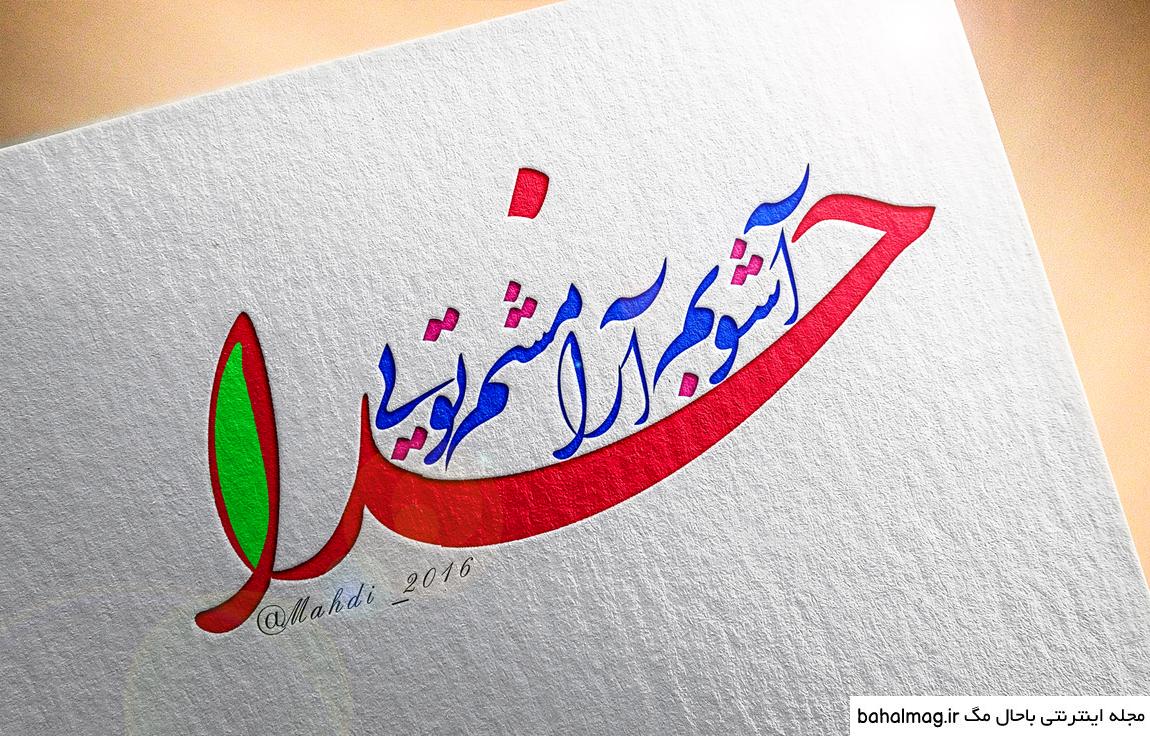 خدا
آشوبم آرامشم تویی
@Mahdi _2016
مجله اینترنتی باحال مگ bahalmag.ir